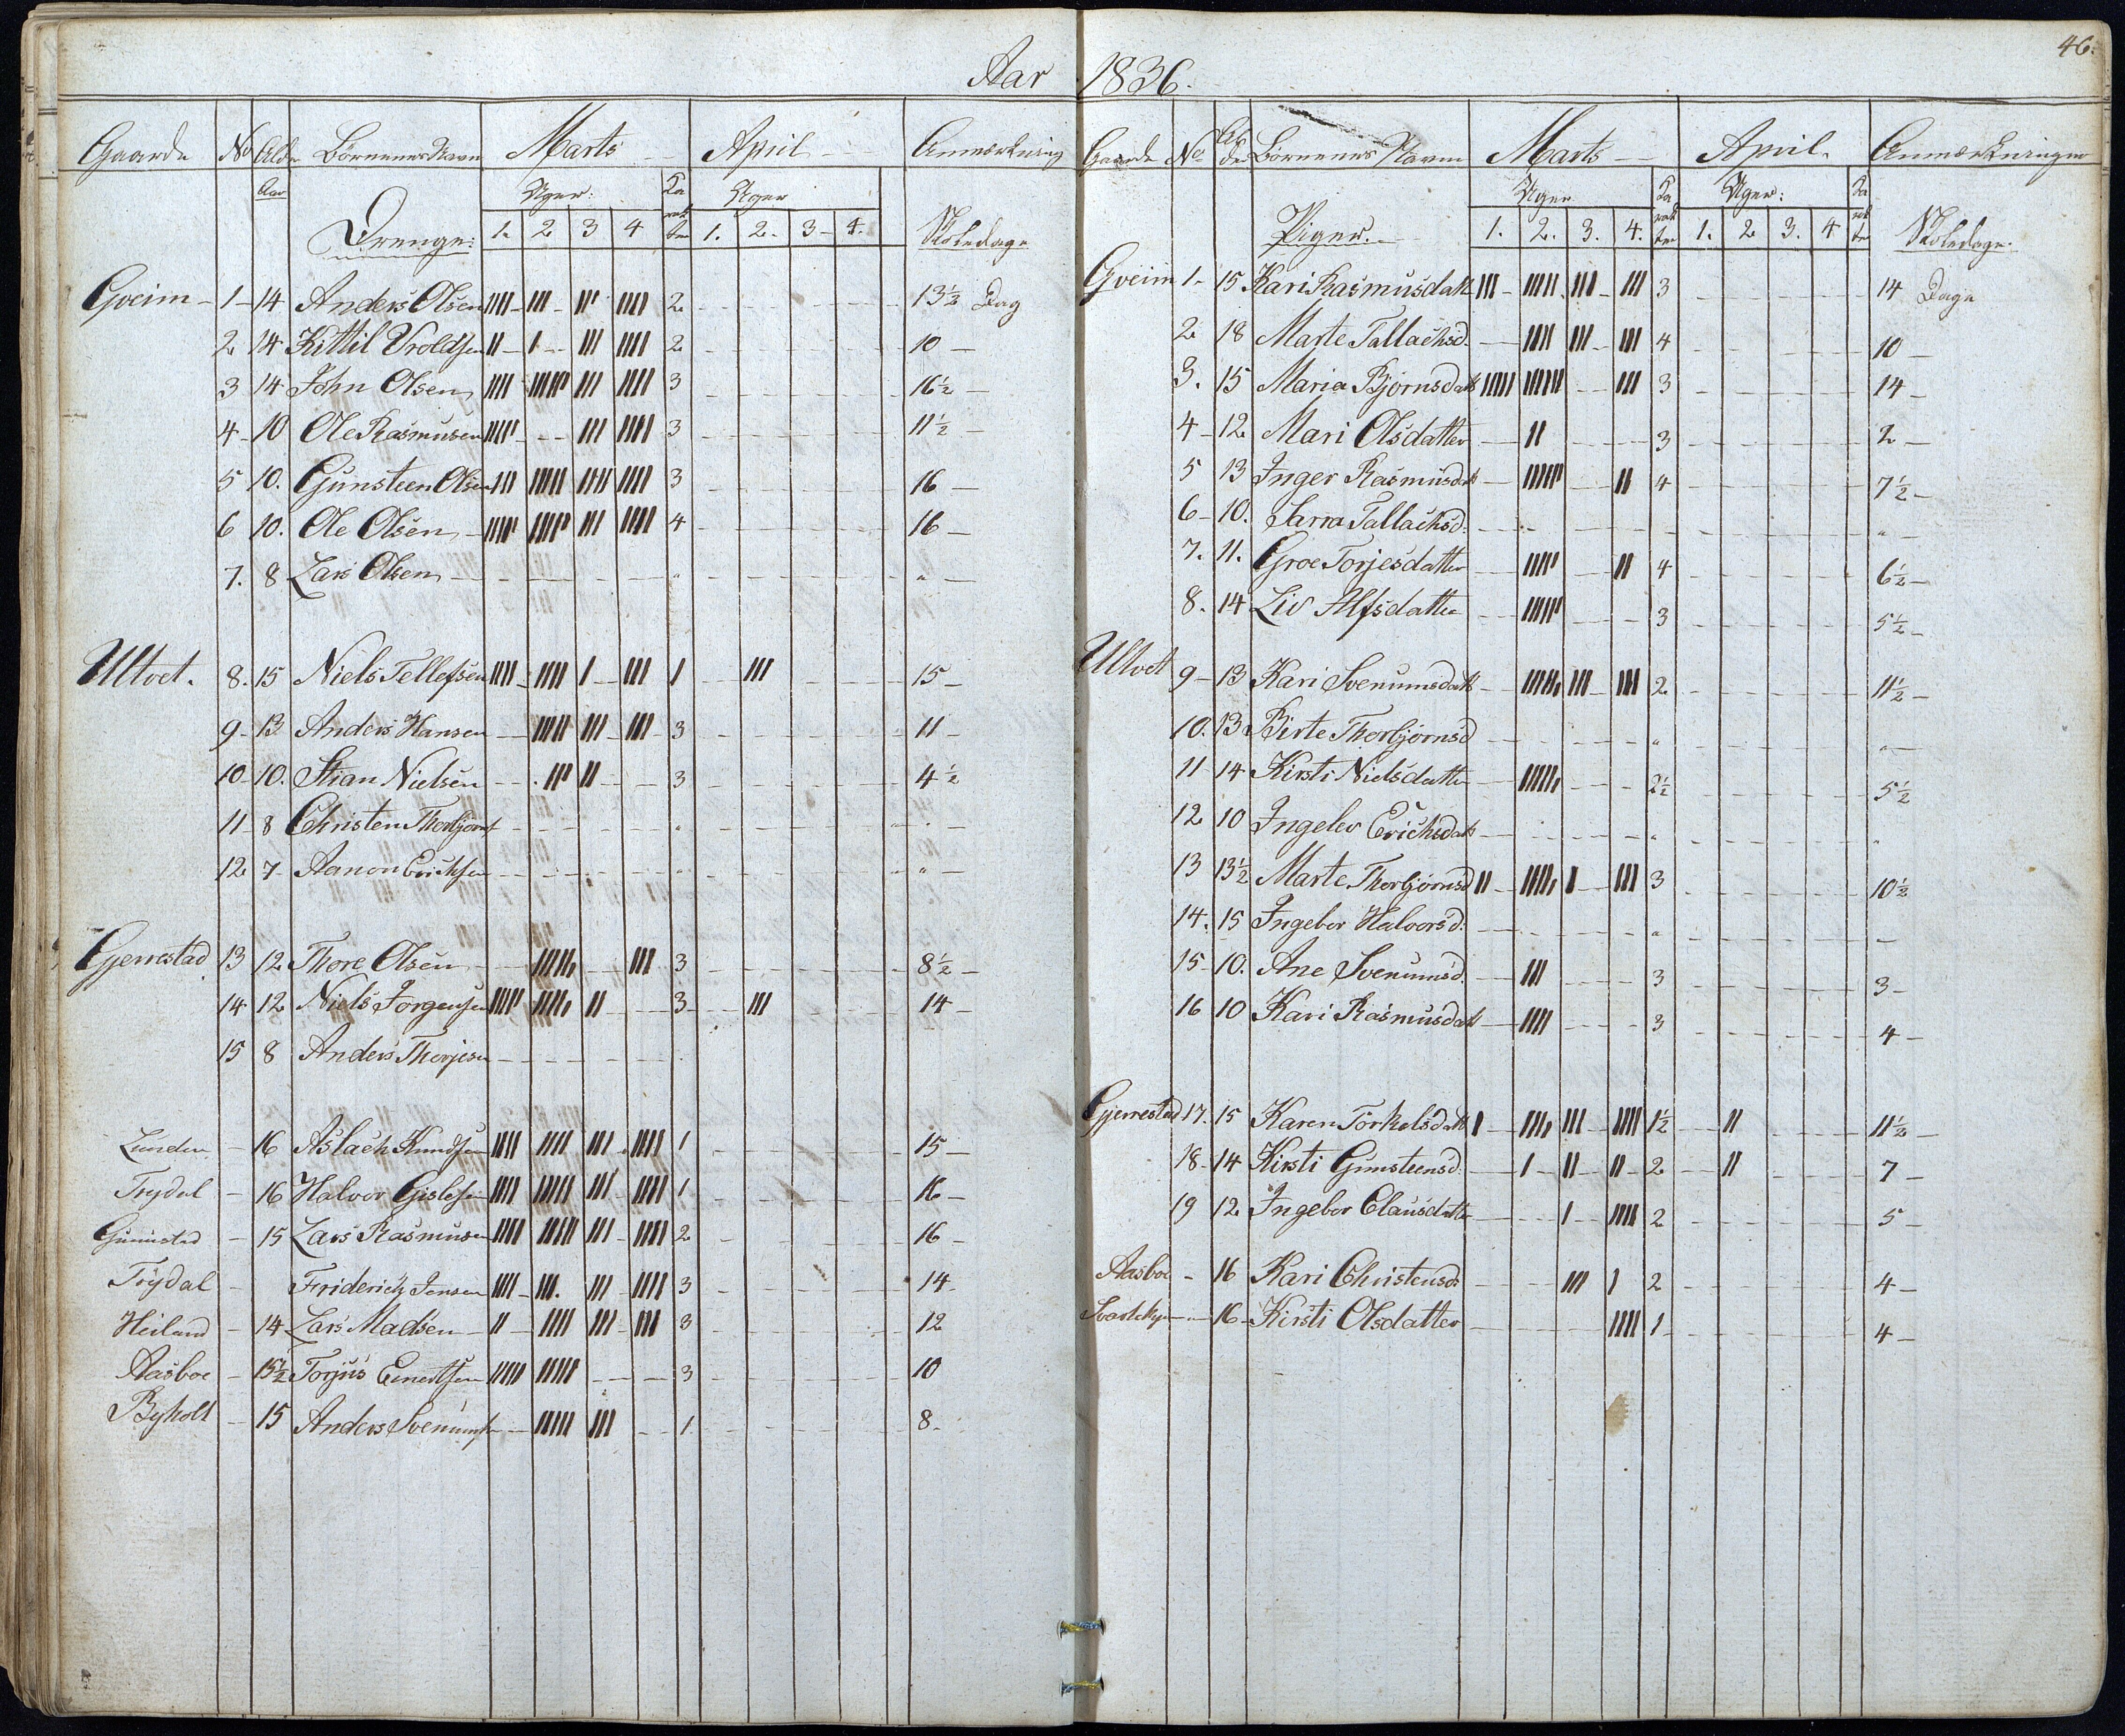 Aar 1836.
46.
Gaarde No Alder Börnenes Navn Marts April Anmærkning
Aar Uger: Karakter Uger
Drenge: 1. 2 3 4 1. 2. 3 4. Skoledage
Gveim 1 14 Anders Olsen IIII III II' IIII 2 13½ Dag
2 14 Kittil Vroldsen II I III IIII 2 10
3 14 John Olsen IIII IIIII' III IIII 3 16½
4 10 Ole Rasmusen IIII' III IIII 3 11½
5 10. Gunsteen Olsen III IIIII IIII IIII 3 16
6 10. Ole Olsen IIII' IIII' III IIII 4 16
7. 8 Lars Olsen " "
Ultvet. 8. 15 Niels Tellefsen IIII IIII I III 1 III 15
9 13 Anders Hansen IIII III III 3 11
10 10. Stian Nielsen II' II 3 4½
11 8 Christen Thorbjörns " "
12 7 Aanon Erichsen " "
Gjerrestad 13 12 Thore Olsen IIIII' III 3 8½
14 12 Niels Jorgensen IIIII' IIII' II 3 III 14
15 8 Anders Thorjesen
Lunden 16 Aslach Knudsen IIII IIII III IIII 1 15
Trydal 16 Halvor Gislesen IIII IIIII III IIII 1 16
15 Lars Rasmusen IIII IIIII III IIII 2 16
Trydal Friderich Jensen IIII III. III IIII 3 14.
Heiland 14 Lars Madsen II IIII III III 3 12
Aasboe 15½ Torjus Eenertsen IIIII IIIII 3 10
Byholt 15 Anders Svenums IIIII III 1 8.
Gaarde No Alder Börnenes Navne Marts April. Anmærkninger
Uger Karakter Uger: Karakter
Piger. 1. 2. 3. 4. 1. 2 3. 4 Skoledage.
Gveim 1. 15 Kari Rasmusdatt III IIIII III III 3 14 Dage
2 18 Marte Tallachsd. IIII III III 4 10
3. 15 Maria Bjornsdatt IIIII IIIIII III 3 14
4 12 Mari Olsdatter II 3 2
5 13 Inger Rasmusdatt IIIII' II 4 7½
6 10. Sarra Tallachsd. "
7. 11. Groe Torjesdatter IIII' II 4 6½
8. 14 Liv Alfsdatter IIIII' 3 5½
Ultvet 9 13 Kari Svenumsdatt IIIII' III III 2 11½
10. 13 Birte Thorbjornsd " "
11 14 Kirsti Nielsdatter IIIII' 2½ 5½
12 10 Ingelev Erichsdatt " "
13 13½ Marte Thorbjornsd II IIIII' I III 3 10½
14. 15 Ingebor Halvorsd. "
15 10. Ane Svenumsd. III 3 3
16 10 Kari Rasmusdatt IIII 3 4
Gjerrestad 17. 15 Karen Torkelsdatt I IIII' III IIII 1½ II 11½
18 14 Kirsti Gunsteensd. I II II 2 II 7
19 12 Ingebor Clausdatter I IIII 2 5
Aasboe 16 Kari Christensd III I 2 4
16 Kirsti Olsdatter IIII 1 4